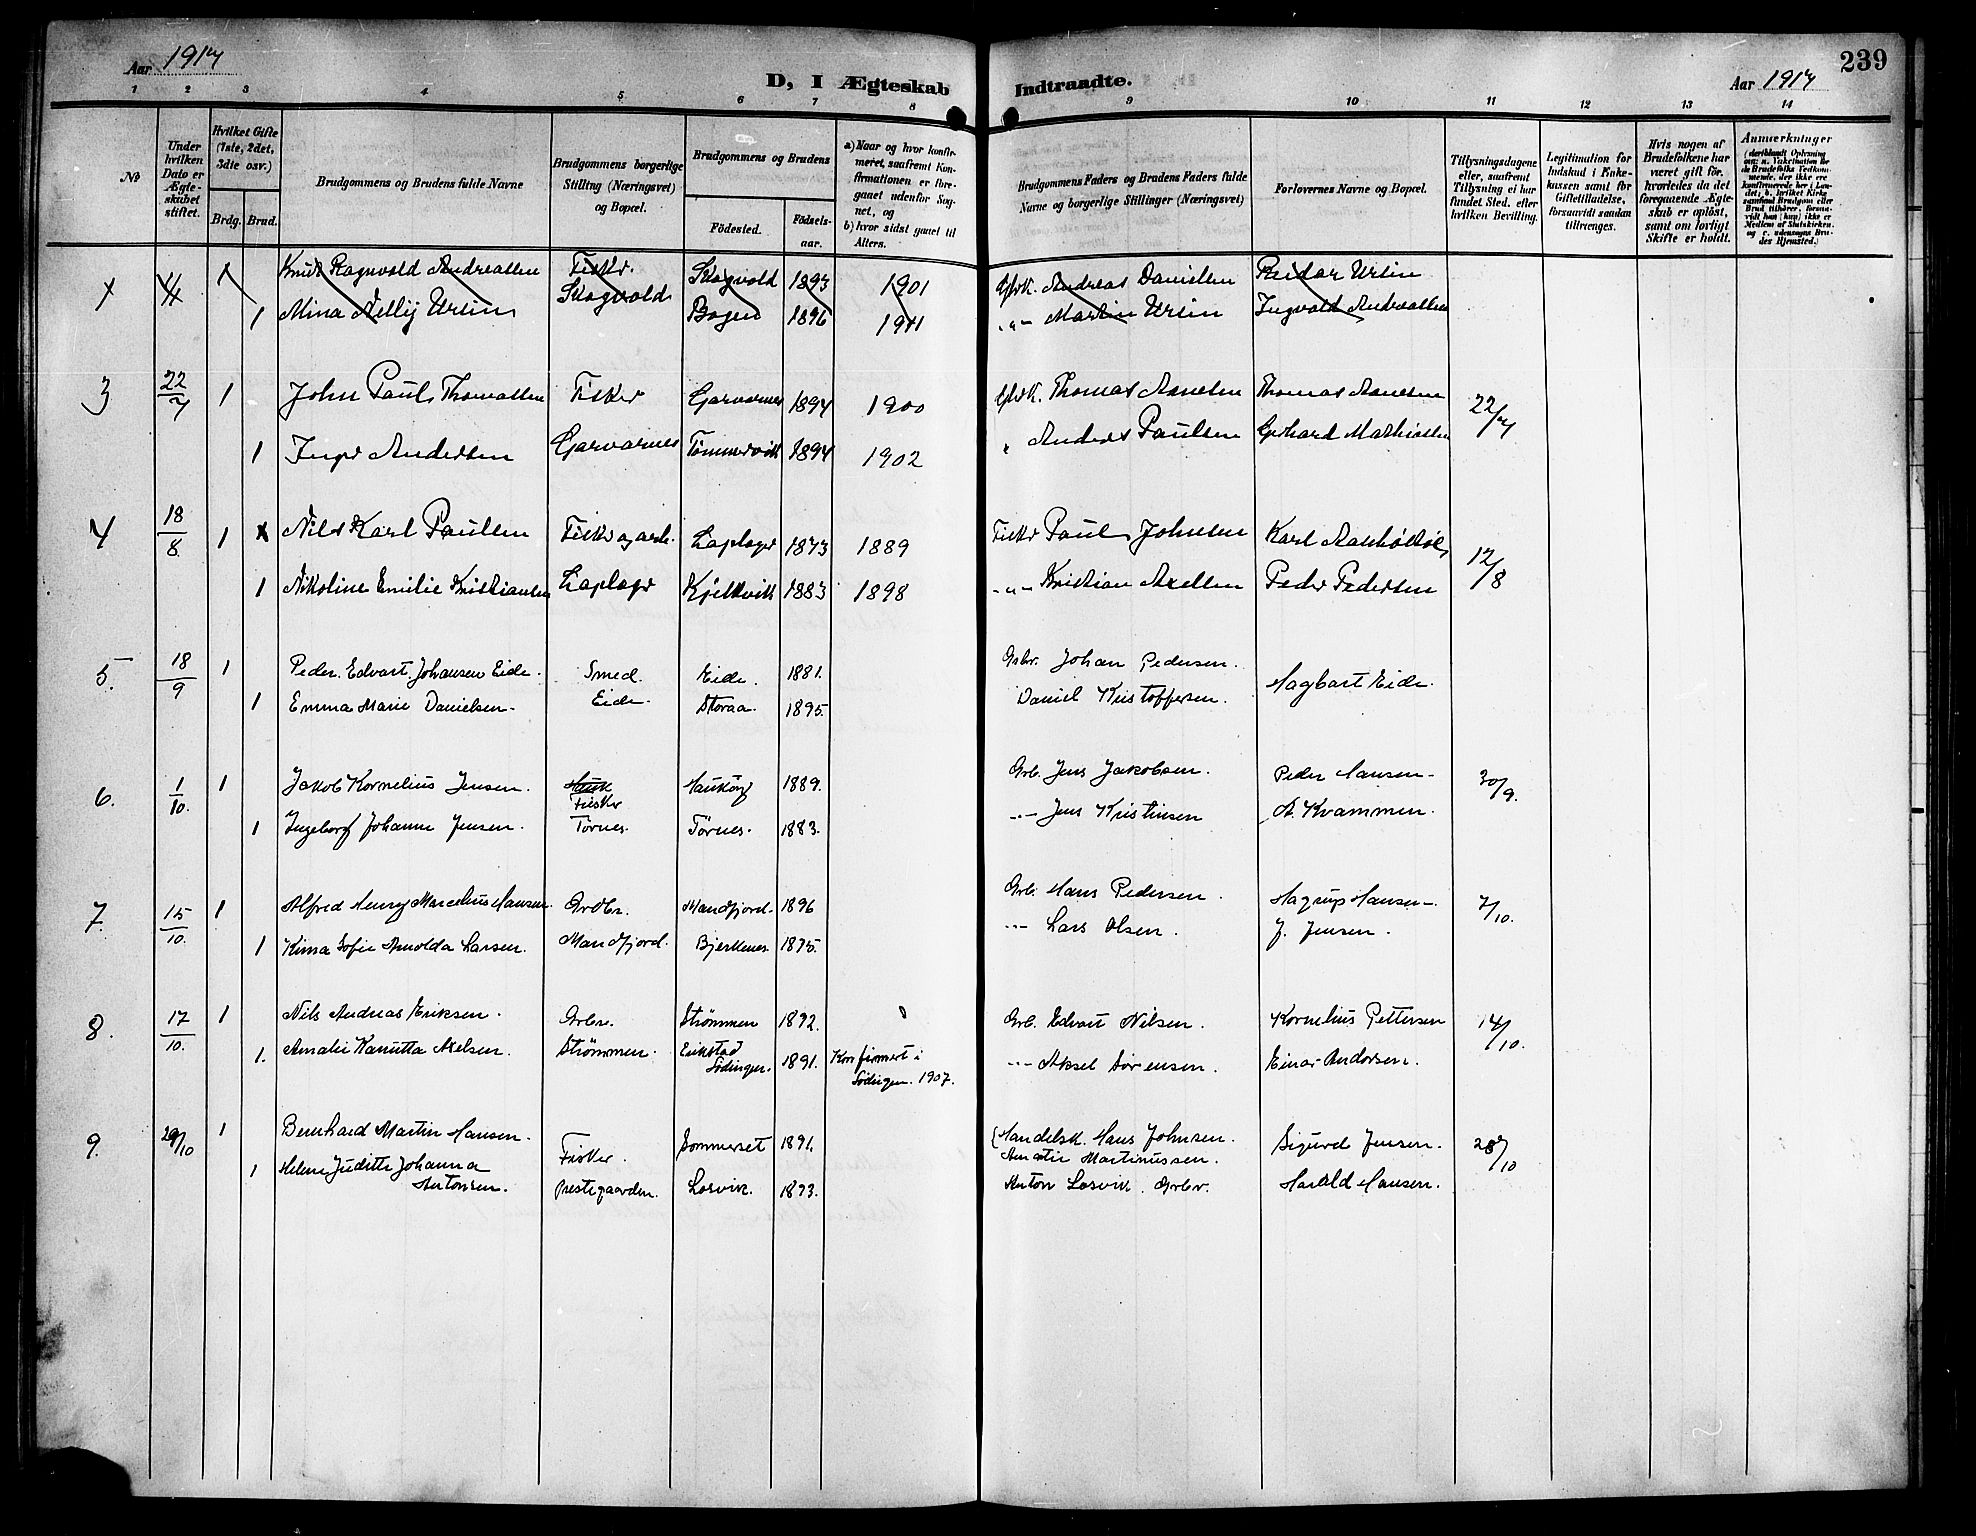 Aar 1917
D, I Ægteskab Indtraadte.
Aar 1917
239
1 2 3 4 5 6 7 8 9 10 11 12 13 14
No
Under hvilken Dato er Ægteskabet stiftet.
Hvilket Gifte (1ste, 2det, 3die osv.)
Brdg. Brud.
Brudgommens og Brudens fulde Navne
Brudgommens borgerlige Stilling (Næringsvei) og Bopæl.
Brudgommens og Brudens
Fødested. Fødselsaar.
a) Naar og hvor konfirmeret, saafremt Konfirmationen er foregaaet udenfor Sognet, og
b) hvor sidst gaaet til Alters.
Brudgommens Faders og Brudens Faders fulde Navne og borgerlige Stillinger (Næringsvei)
Forlovernes Navne og Bopæl.
Tillysningsdagene eller, saafremt Tillysning ei har fundet Sted, efter hvilken Bevilling.
Legitimation for Indskud i Enkekassen samt for Giftetilladelse, forsaavidt saadan tiltrænges.
Hvis nogen af Brudefolkene har været gift før, hvorledes da det foregaaende Ægteskab er opløst, samt om lovligt Skifte er holdt.
Anmærkninger
Knut Ragnvold Andreassen Fisker. Skogvold 1893 1901 Andreas Danielsen Reidar Ursin
1 Mina Nellij Ursin Skogvold Bogen 1896 1911 -"- Martin Ursin Ingvald Andreassen
3 22/7 1 John Paul Thomassen Fisker Garvarnes 1894 1900 Thomas Aanesen Thomas Aanesen 22/7
1 Inger Andersen Garvarnes Tømmervik 1894 1902 " Anders Paulsen Gerhard Mathiassen
4 18/8 1 Nils Karl Paulsen Fisker og arb. Laplager 1873 1889 Fisker Paul Johnsen Karl 12/8
1 Nikoline Emilie Kristiansen Laplager Kjelkvik 1883 1898 -"- Kristian Axelsen Peder Pedersen
5. 18/9 1 Peder Edvart Johansen Eide. Smed. Eide. 1881. Grbr. Johan Pedersen. Hagbart Eide.
1 Emma Marie Danielsen. Eide. Storaa. 1895. Daniel Kristoffersen.
6. 1/10. 1 Jakob Kornelius Jensen. Fisker Haukøy 1889. Grb. Jens Jakobsen. Peder Hansen 30/9.
1 Ingeborg Johanne Jensen. Tørnes. Tørnes. 1883. -"- Jens Kristinsen A. Kvammen.
7. 15/10. 1 Alfred Henry Marcelius Hansen. Grdbr. Mandfjord. 1896 Grb. Hans Pedersen. Hagrup Hansen 7/10.
1 Kima Sofie Arnolda Larsen. Mandfjord. Bjerknes 1895. -"- Lars Olsen. J. Jensen.
8. 17/10. 1 Nils Andreas Eriksen. Grbr. Strømmen 1892. Grb. Edvart Nilsen. Kornelius Pettersen 14/10.
1. Amalie Kanutta Axelsen. Strømmen. Erikstad Lødingen. 1891. Konfirmert i Lødingen. 1907. -"- Aksel Sørensen. Einar Andersen.
9. 29/10 1 Bernhard Martin Hansen. Fisker. Sommerset 1891. Handelsk. Hans Johnsen. Sigurd Jensen. 28/10
Martinussen.
1 Helene Judith Johanna Antonsen. Prestegaarden. Losvik. 1893. Anton Losvik. Grbr. Harald Hansen.